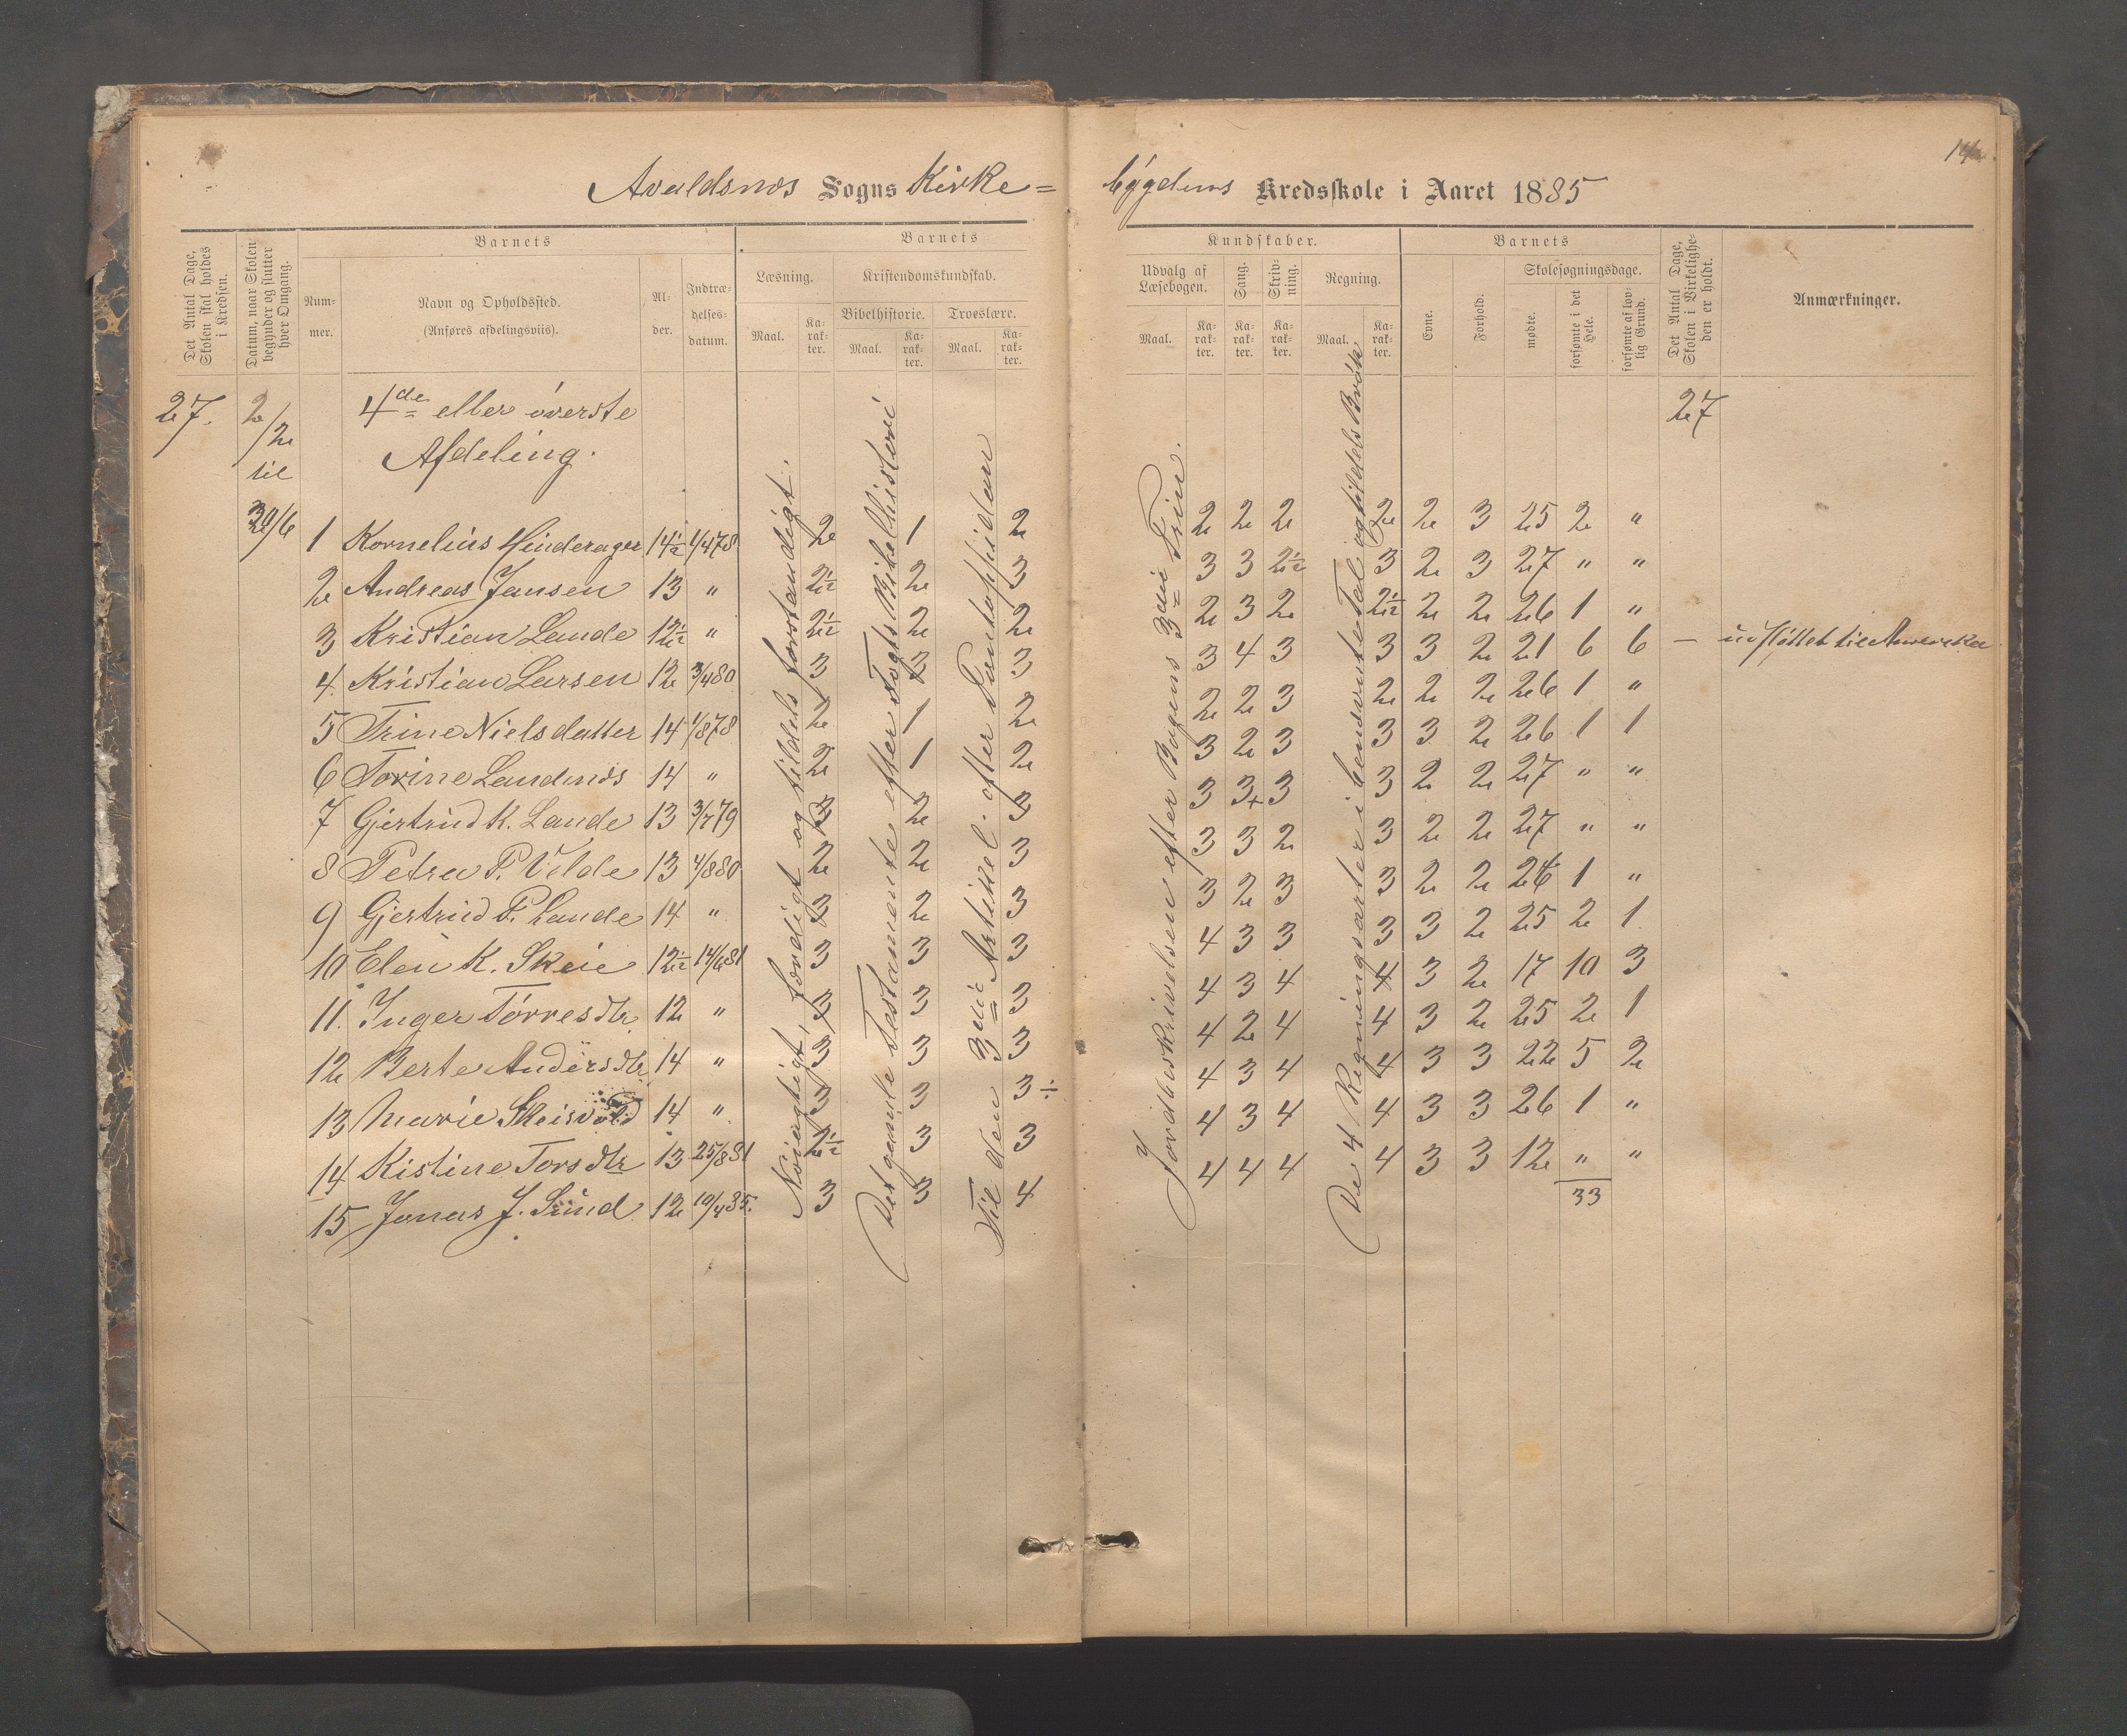 14
Avaldsnæs Sogns Kirke=
bygdens Kredsskole i Aaret 1885
Det Antal Dage, Skolen skal holdes i Kredsen.
Datum, naar Skolen begynder og slutter hver Omgang.
Barnets
Nummer.
Navn og Opholdssted.
(Anføres afdelingsviis).
Alder.
Indtrædelsesdatum.
Barnets
Læsning.
Kristendomskundskab.
Bibelhistorie. Troeslære.
Maal. Karakter. Maal. Karakter. Maal. Karakter.
Kundskaber.
Udvalg af Læsebogen.
Sang.
Skrivning.
Regning.
Maal. Karakter. Karakter. Karakter. Maal. Karakter.
Barnets
Evne.
Forhold.
Skolesøgningsdage.
mødte.
forsømte i det Hele.
forsømte af lovlig Grund.
Det Antal Dage, Skolen i Virkeligheden er holdt.
Anmærkninger.
27. 2/2 til 30/6
4de eller øverste
Afdeling.
27
Nøiagtigt, færdigt og tildels forstandigt.
Det gamle Testamente efter Vogts Bibelhistorie
Til den 3die Artikel efter Pontoppidan
Jordbeskrivelsen efter Bogens 3die Trin.
De 4 Regningsarter i benævnte Tal og tildels Brøk
1 Kornelius Hinderager 14½ 1/4 78 2 1 2 2 2 2 2 2 3 25 2 "
2 Andreas Jansen 13 " 2½ 2 3 3 3 2½ 3 2 3 27 " "
3 Kristian Lande 12½ " 2½ 2 2 2 3 2 2½ 2 2 26 1 "
4. Kristian Larsen 12 3/4 80 3 3 3 3 4 3 3 3 2 21 6 6 — udflyttet til Amerika
5 Trine Nielsdatter 14 1/8 78 2 1 2 2 2 3 2 2 2 26 1 "
6 Torine Landsnæs 14 " 2 1 2 3 2 3 3 3 2 26 1 1
7 Gjertrud K. Lande 13 3/7 79 3 2 3 3 3+ 3 3 2 2 27 " "
8 Petra P. Velde 13 4/8 80 2 2 3 3 3 2 3 2 2 27 " "
9 Gjertrud P. Lande 14 " 3 2 3 3 2 3 3 2 2 26 1 "
10 Elen K. Skeie 12½ 14/6 81 3 3 3 4 3 3 3 3 2 25 2 1
11. Inger Tørresdtr 12 " 3 3 3 4 3 4 4 3 2 17 10 3
12 Berte Andersdtr 14 " 3 3 3 4 2 4 4 3 2 25 2 1
13 Marie Skeisvold 14 " 3 3 3÷ 4 3 4 4 3 3 22 5 2
14 Kistine Torsdtr 13 25/8 81 2½ 3 3 4 3 4 4 3 3 26 1 "
15 Jonas J. Sund 12 10/4 85. 3 3 4 4 4 4 4 3 3 12 " "
33